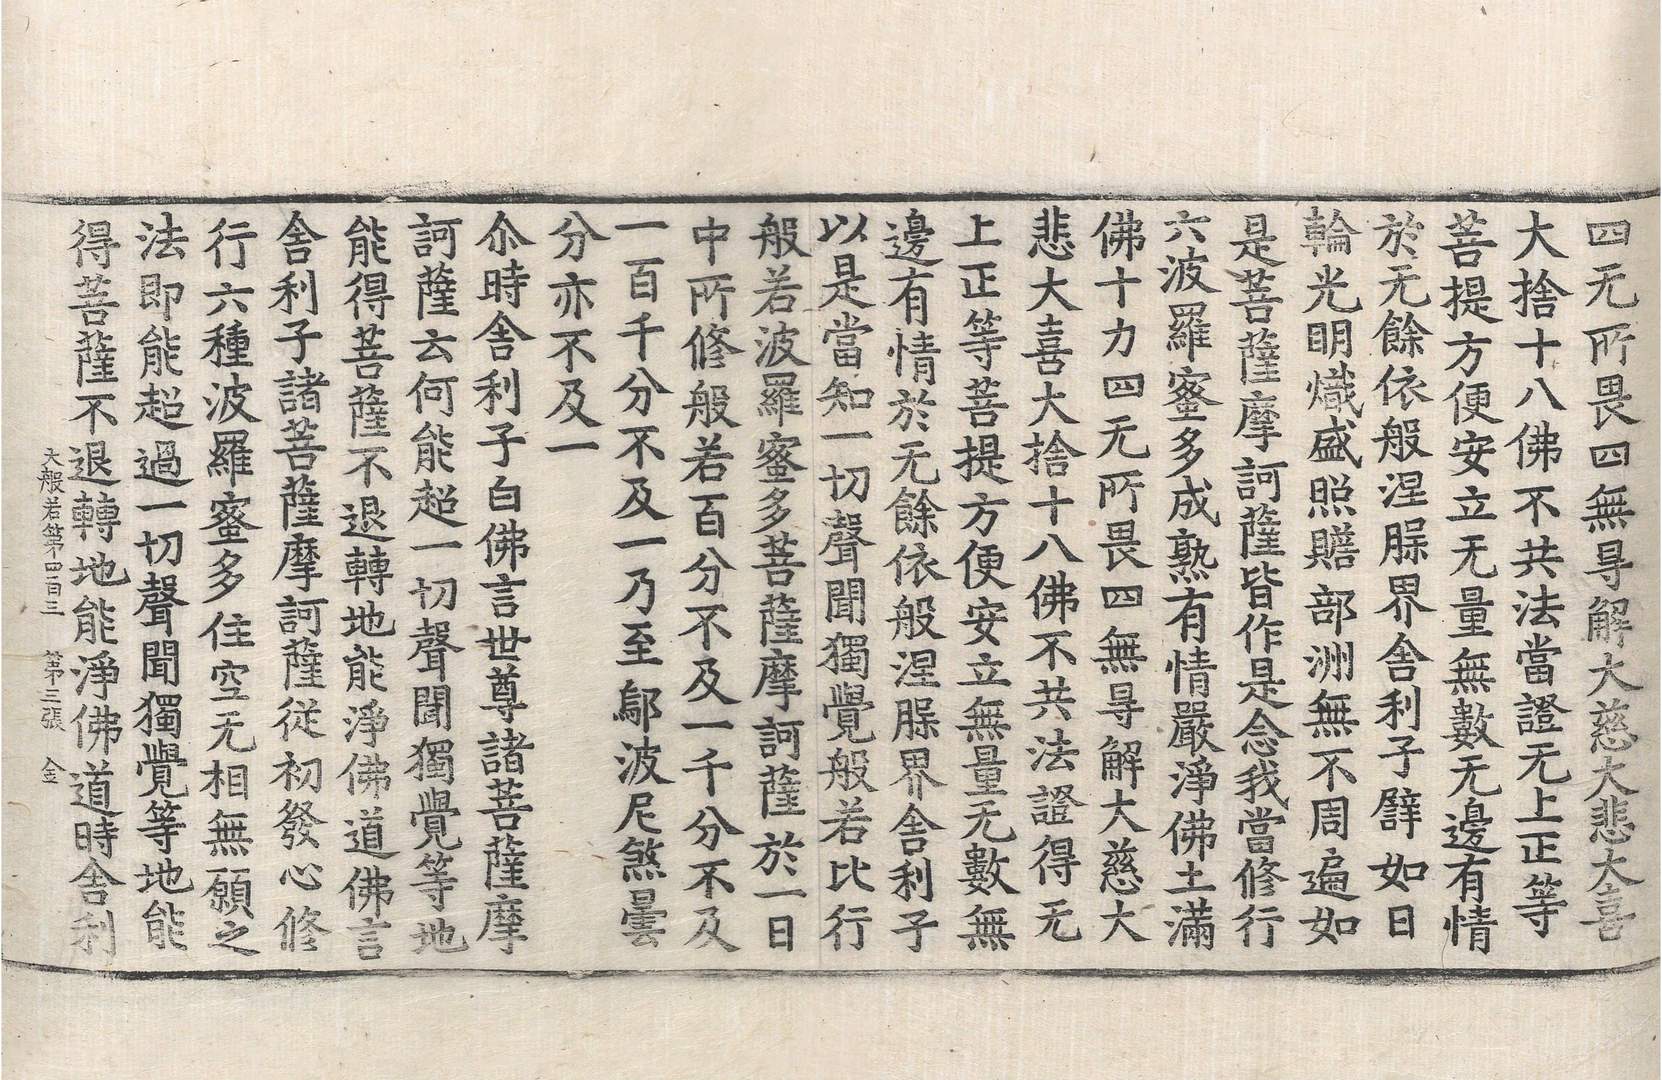 四无所畏四無㝵解大慈大悲大喜
大捨十八佛不共法當證无上正等
菩提方便安立无量無數无邊有情
於无餘依般涅脲界舍利子譬如日
輪光明熾盛照贍部洲無不周遍如
是菩薩摩訶薩皆作是念我當修行
六波羅蜜多成熟有情嚴淨佛土滿
佛十力四无所畏四無㝵解大慈大
悲大喜大捨十八佛不共法證得无
上正等菩提方便安立無量无數無
邊有情於无餘依般涅脲界舍利子
以是當知一切聲聞獨覺般若比行
般若波羅蜜多菩薩摩訶薩於一日
中所修般若百分不及一千分不及
一百千分不及一乃至鄔波尼煞曇
分亦不及一
尒時舍利子白佛言世尊諸菩薩摩
訶薩云何能超一切聲聞獨覺等地
能得菩薩不退轉地能淨佛道佛言
舍利子諸菩薩摩訶薩從初發心修
行六種波羅蜜多住空无相無願之
法即能超過一切聲聞獨覺等地能
得菩薩不退轉地能淨佛道時舍利
大般若第四百三 第三張 金